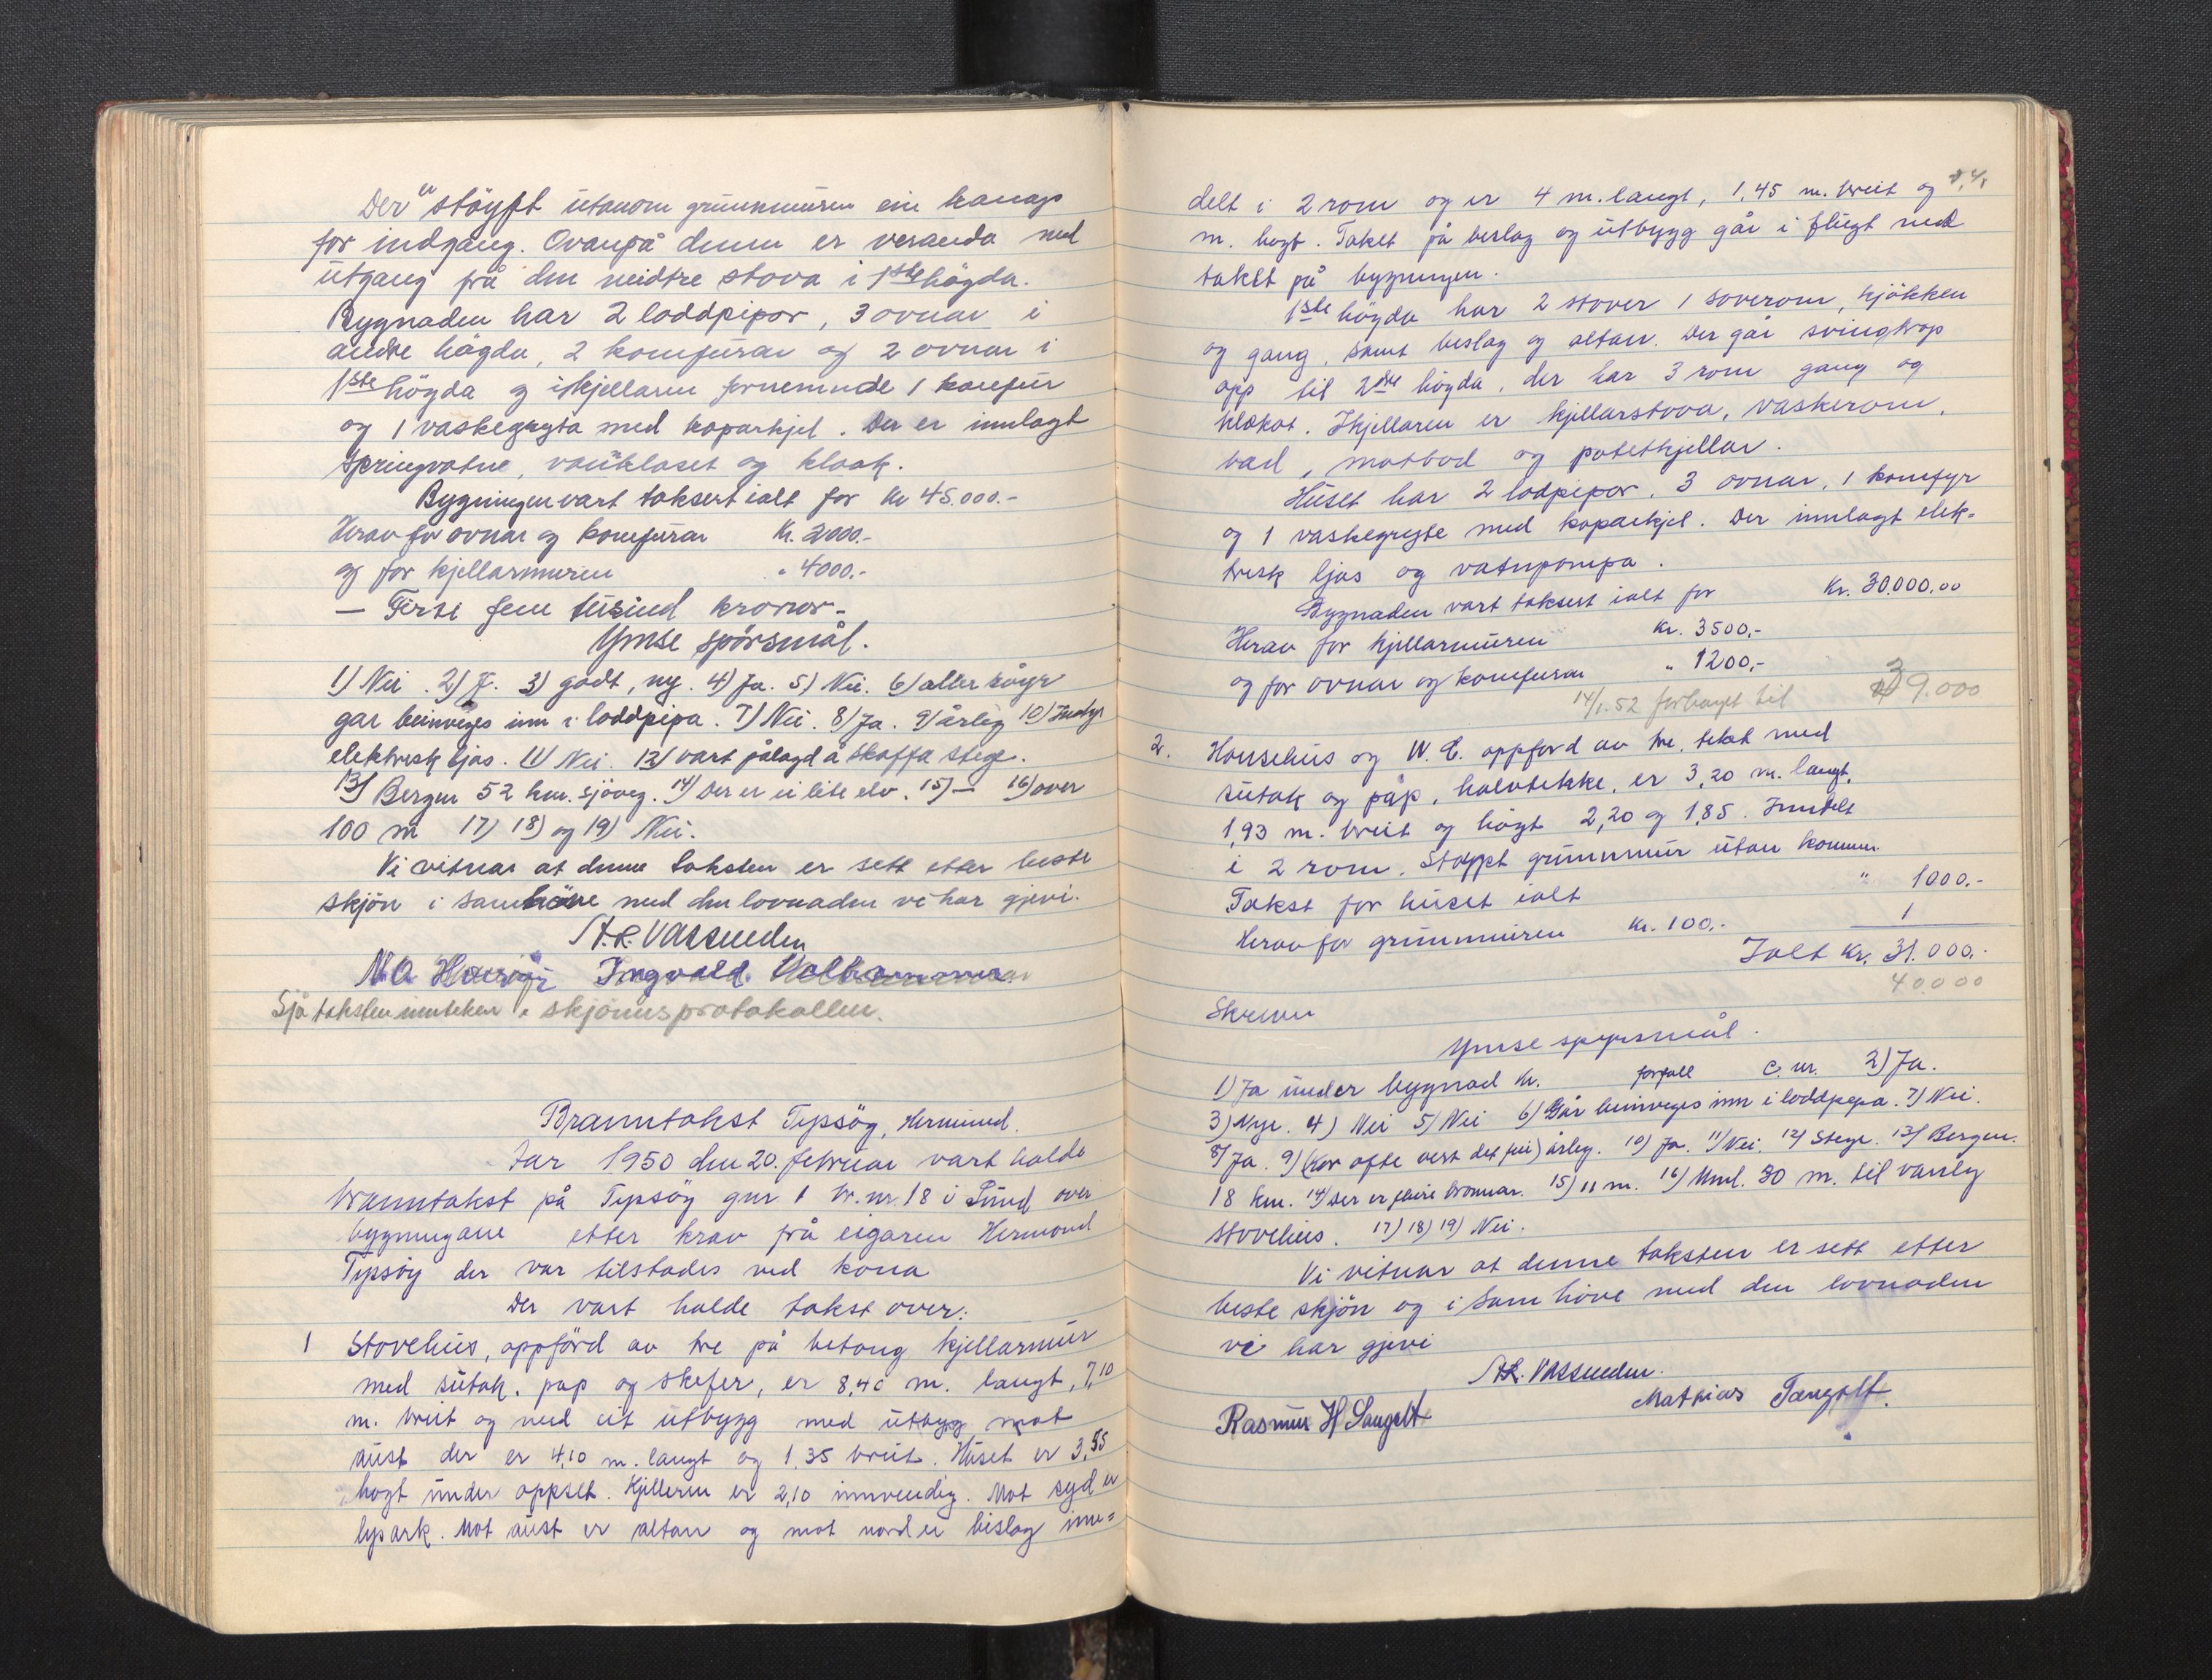 Der " støypt utanom grunnmuren ein
for indgang. Ovanpå denne er veranda med
utgang frå den midtre stova i 1ste högda.
Bygnaden har 2 loddpipor, 3 ovnar i
andre högda, 2 komfurar og 2 ovnar i
1ste högda og i kjellaren fornemnde 1 komfur
og 1 vaskegryta med koparkjel. Der er innlagt
springvatne, vanklaset og kloak.
Bygningen vart taksert ialt for kr 45.000.-
Herav for ovnar og komfurar Kr. 2000.-
og for kjellarmuren " 4000.-
— Firti fem tusind kronor.-
Ymse spörsmål.
1) Nei. 2) J. 3) godt, ny. 4) Ja. 5) Nei. 6) aller röyr
gar beinveges inn i loddpipa. 7) Nei. 8) Ja. 9) årleg 10)
elektrisk ljos. 11) Nei. 12) vart pålagd å skaffa stege.
13) Bergen 52 km. sjöveg. 14) Der er ei lite elv. 15) — 16) over
100 m 17) 18) og 19) Nei.
Vi vitnar at denne taksten er sett etter beste
skjön i samhöve med den lovnaden vi har gjevi.
A.R. Vassenden
N.A. Ingvald.
Sjå taksten innteken i skjönnsprotokollen.
Branntakst Tyssöy, Hermund.
Aar 1950 den 20. februar vart halde
branntakst på Tyssöy gnr 1 br.nr. 18 i Sund over
bygningane etter krav frå eigaren Hermond
Tyssöy der var tilstades ved kona
Der vart halde takst over:
1 Stovehus, oppförd av tre på betong kjellarmur
med sutak, pap og skefer, er 8,40 m. langt, 7,10
m. breit og med eit utbygg med utbyg mot
aust der er 4,10 m. langt og 1,35 breit. Huset er 3,55
hogt under oppset. Kjelleren er 2,10 innvendig. Mot syd er
lysark. Mot aust er altan og mot nord er bislag inn=
delt i 2 rom og er 4 m. langt, 1,45 m. breit og
m. hogt. Taket på beslag og utbygg går i flugt med
taket på bygningen.
1ste högda har 2 stover 1 soverom, kjökken
og gang, samt beslag og altan. Der går svingtrap
opp til 2dre högda, der har 3 rom gang og
klokot. I kjellaren er kjellarstova, vaskerom,
bad, matbod og potetkjellar.
Huset har 2 lodpipor, 3 ovnar, 1 komfyr
og 1 vaskegryte med koparkjel. Der innlagt elek=
trisk ljos og vatnpompa.
Bygnaden vart taksert ialt for Kr. 30.000.00
Herav for kjellarmuren Kr. 3500,-
og for ovnar og komfurar " 1200,-
14/1.52 forhøyet til 39.000
2. Honsehus og W.C. oppford av tre, tekt med
sutak og pap, halvtekke, er 3,20 m. langt,
1,93 m. breit og högt 2,20 og 1,85. Inndelt
i 2 rom. Støypt grunnmur utan kommen.
Takst for huset ialt " 1000.-
Herav for grunnmuren kr. 100,-
Ialt kr. 31.000.-
40000
Ymse spursmål.
1) Ja under bygnad kr. forfall c. m. 2) Ja.
3) Nye. 4) Nei 5) Nei 6) Går beinveges inn i loddpepa. 7) Nei.
8) Ja. 9) (Kor ofte vert det feii) årleg. 10) Ja. 11) Nei. 12) Stege. 13) Bergen.
18 km. 14) Der er fleire bronnar. 15) 11 m. 16) Uml. 30 m. til vanleg
stovehus. 17) 18) 19) Nei.
Vi vitnar at denne taksten er sett etter
beste skjön og i samhöve med den lovnaden
vi har gjevi
A.R. Vassenden.
Mathias Tangelt.
Rasmus H Sangolt